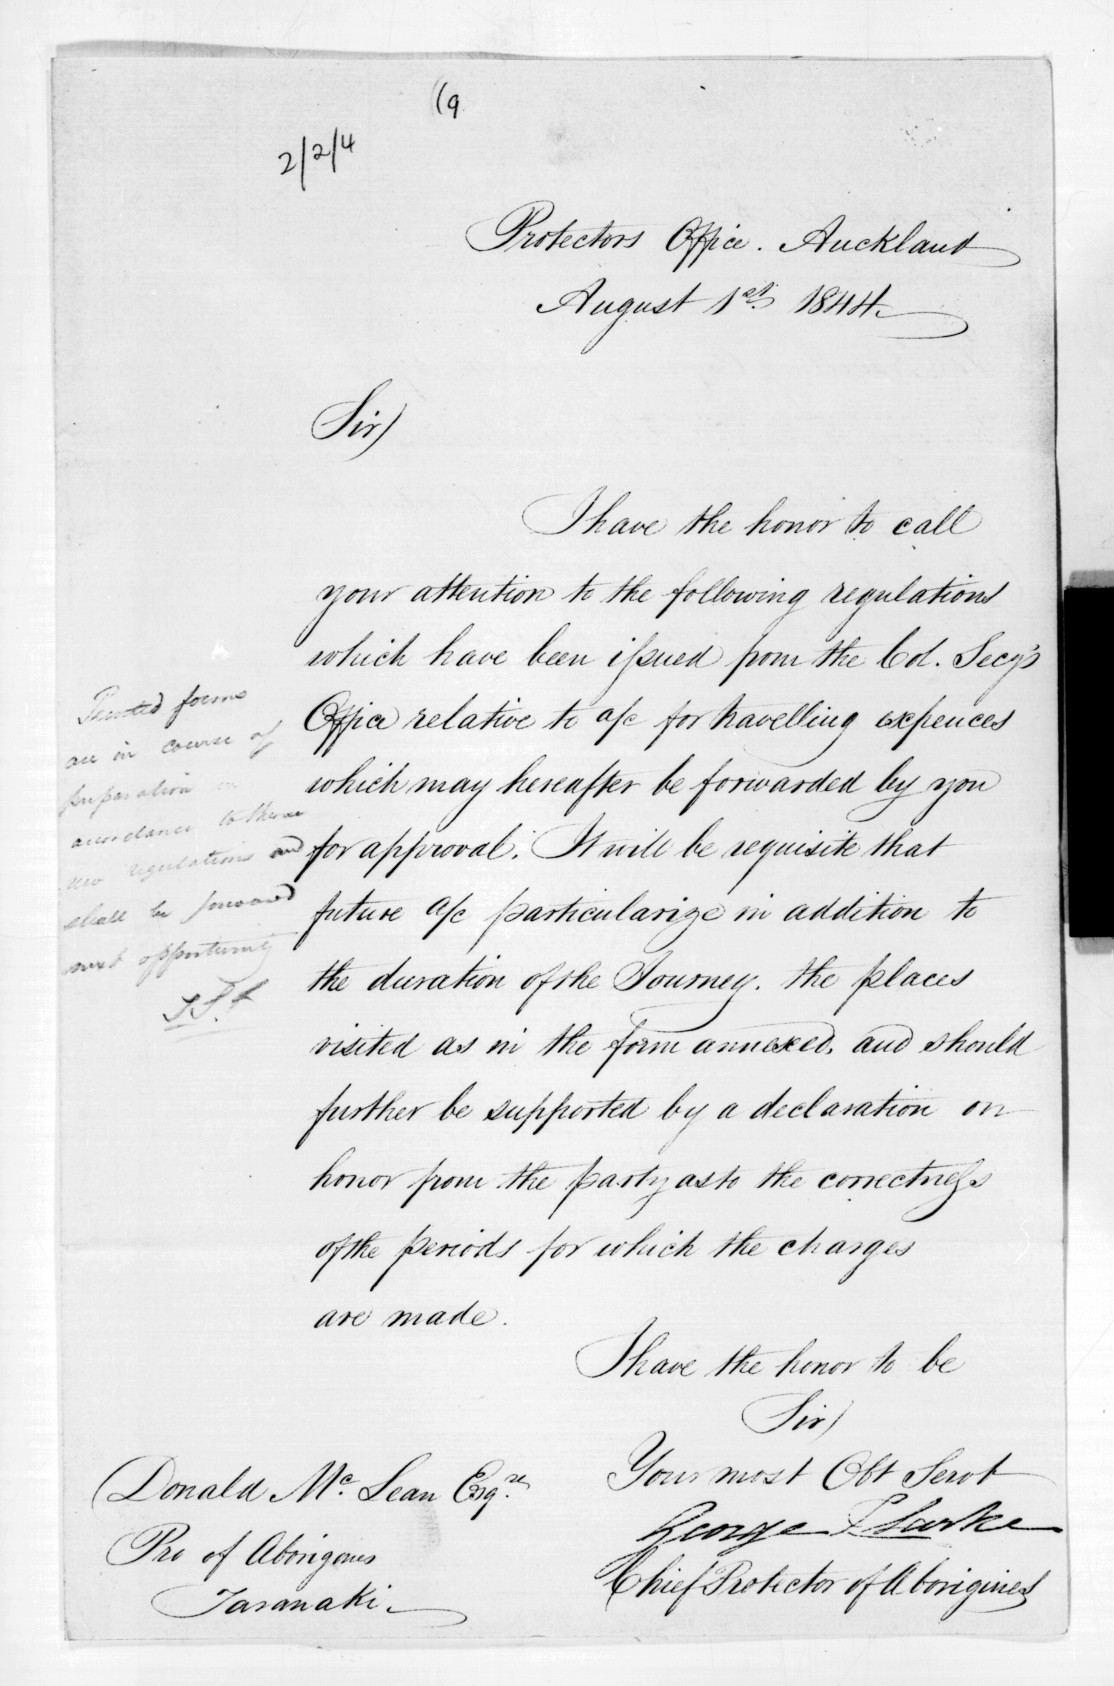 (9
2/2/4
Protectors Office. Auckland
August 1st. 1844.
Sir/
I have the honor to call
your attention to the following regulations
which have been issued from the Col. Secy's
Office relative to a/c for travelling expences
which may hereafter be forwarded by you
for approval. It will be requisite that
future a/c particularize in addition to
the duration of the Journey. the places
visited as in the form annexed, and should
further be supported by a declaration on
honor from the party as to the correctness
of the periods for which the charges
are made.
I have the honor to be
Sir/
Your most Obt Servt
George Clarke
Chief Protector of Aborigines
Donald Mc. Lean Esqre.
Pro of Aborigines
Taranaki.
Printed forms
are in course of
preparation in
accordance to these
new regulations and
shall be forward
next opportunity